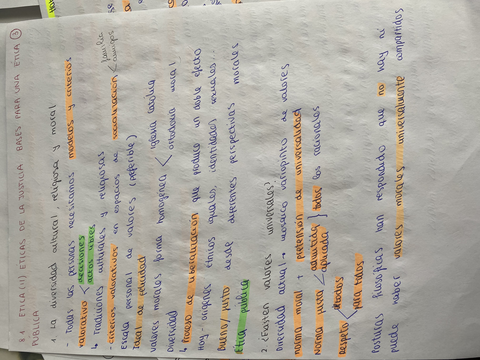 8.1 ETICA (II) ETICAS DE LA JUSTICIA. BASES PARA UNA ÉTICA PÚBLICA 3
1. La diversidad cultural religiosa y moral
- Todas las personas necesitamos modelos y criterios
valorativo < decisiones
actos libres
↳ Tradiciones culturales y religiosas
→ criterios valorativos en espacios de socialización < familia
amigos
Escala personal de valores (preferible)
Ideales de felicidad
valores morales forma homogénea < iglesia católica
ortodoxia moral
Diversidad
↳ Proceso de liberalización que produce un doble efecto
Hoy - orígenes étnicos iguales, identidades sexuales...
Bueno/justo desde diferentes perspectivas morales
Ética pública
2. ¿Existen valores universales?
Diversidad actual → mosaico variopinto de valores
norma moral + pretensión de universalidad
norma justa < admitida
aplicada } todos los racionales
Respeto < todos
para todos
Posturas filosóficas han respondido que no hay ni
puede haber valores morales universalmente compartidos